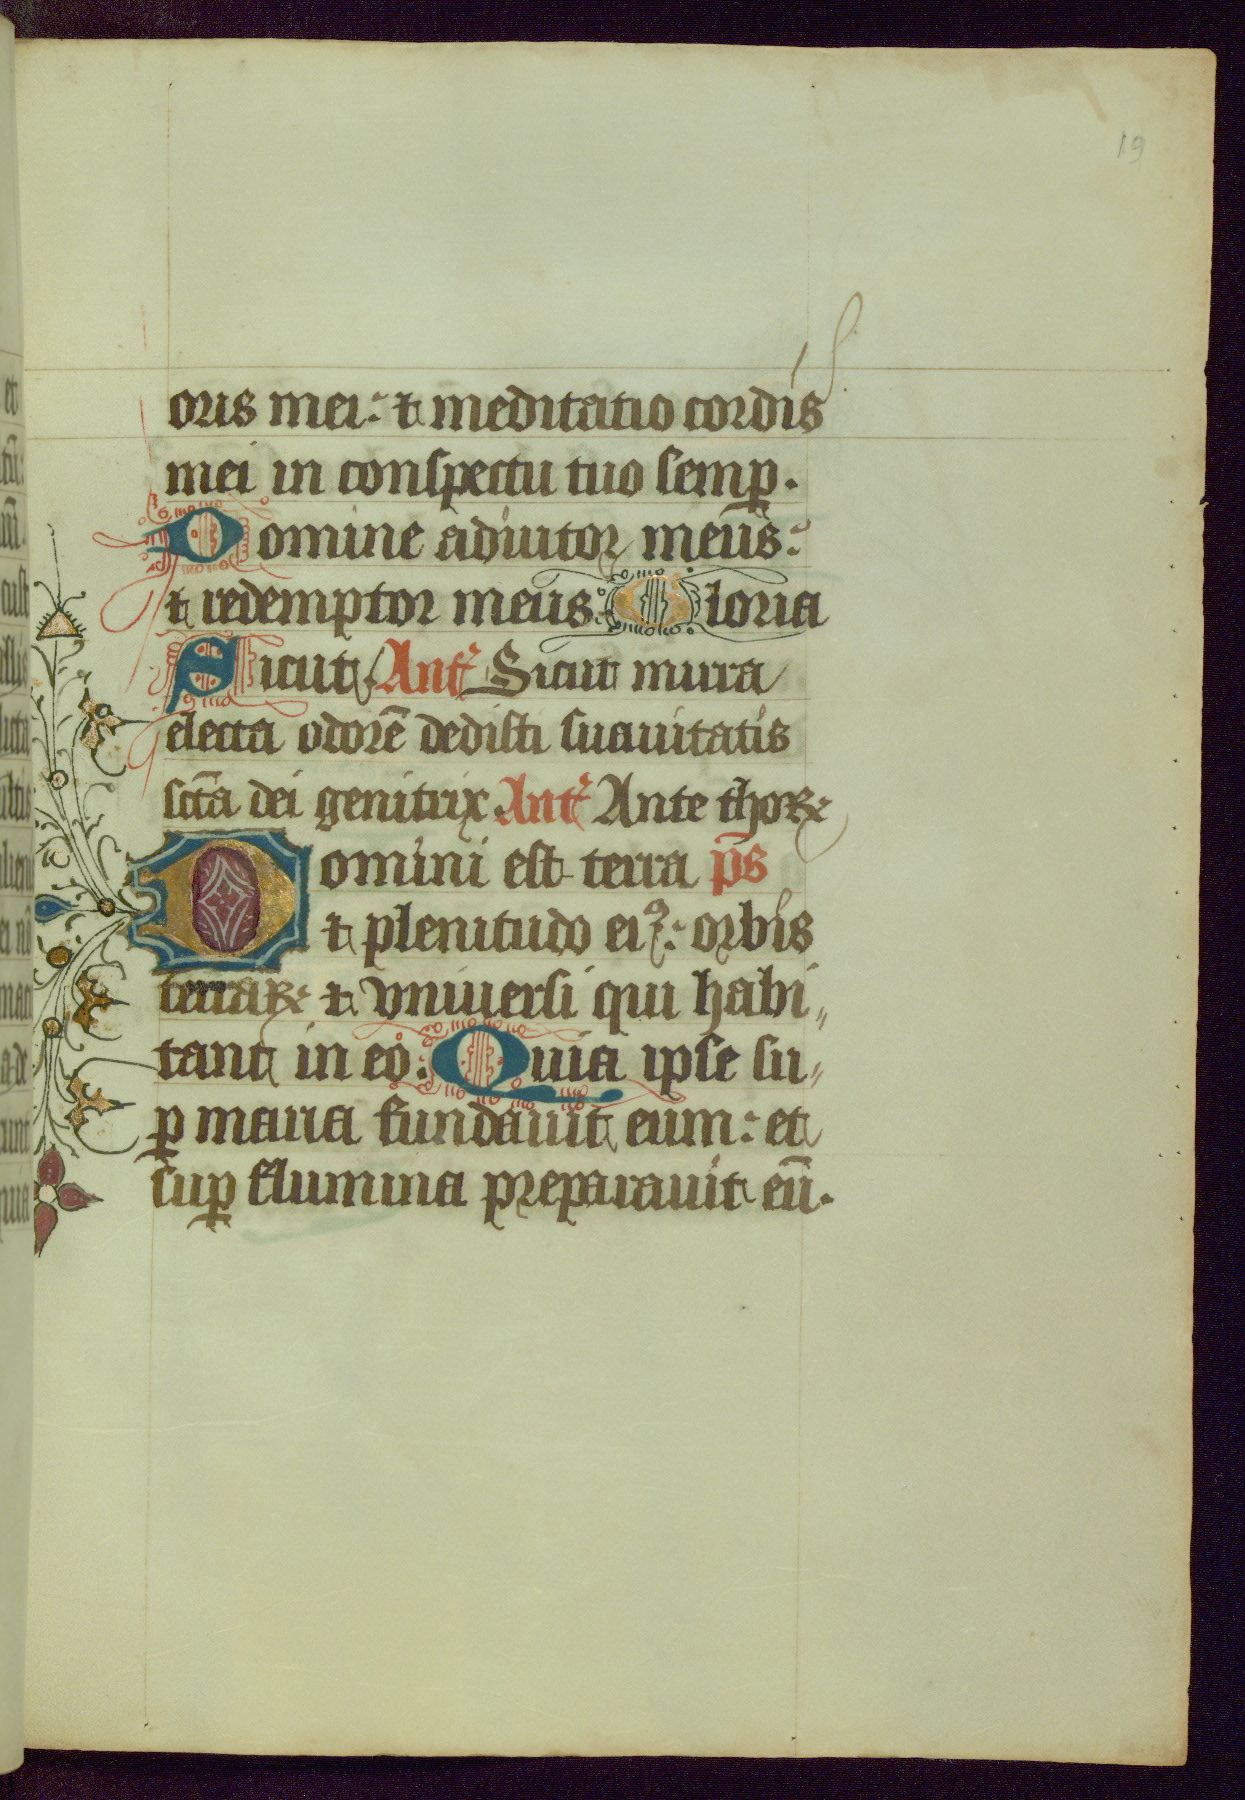 19
oris mei: ⁊ meditatio cordis
mei in conspectu tuo semꝑ.
Domine adiutor meus:
⁊ redemptor meus. Gloria
Sicut Antᷓ Sicut mirra
electa odorē dedisti suauitatis
sctā dei genitrix. Antᷓ Ante thoꝝ
Domini est terra p̄s
⁊ plenitudo eiꝰ: orbis
terraꝝ ⁊ vniuersi qui habi„
tant in eo. Quia ipse su„
ꝑ maria fundauit eum: et
suꝑ flumina preparauit eū.